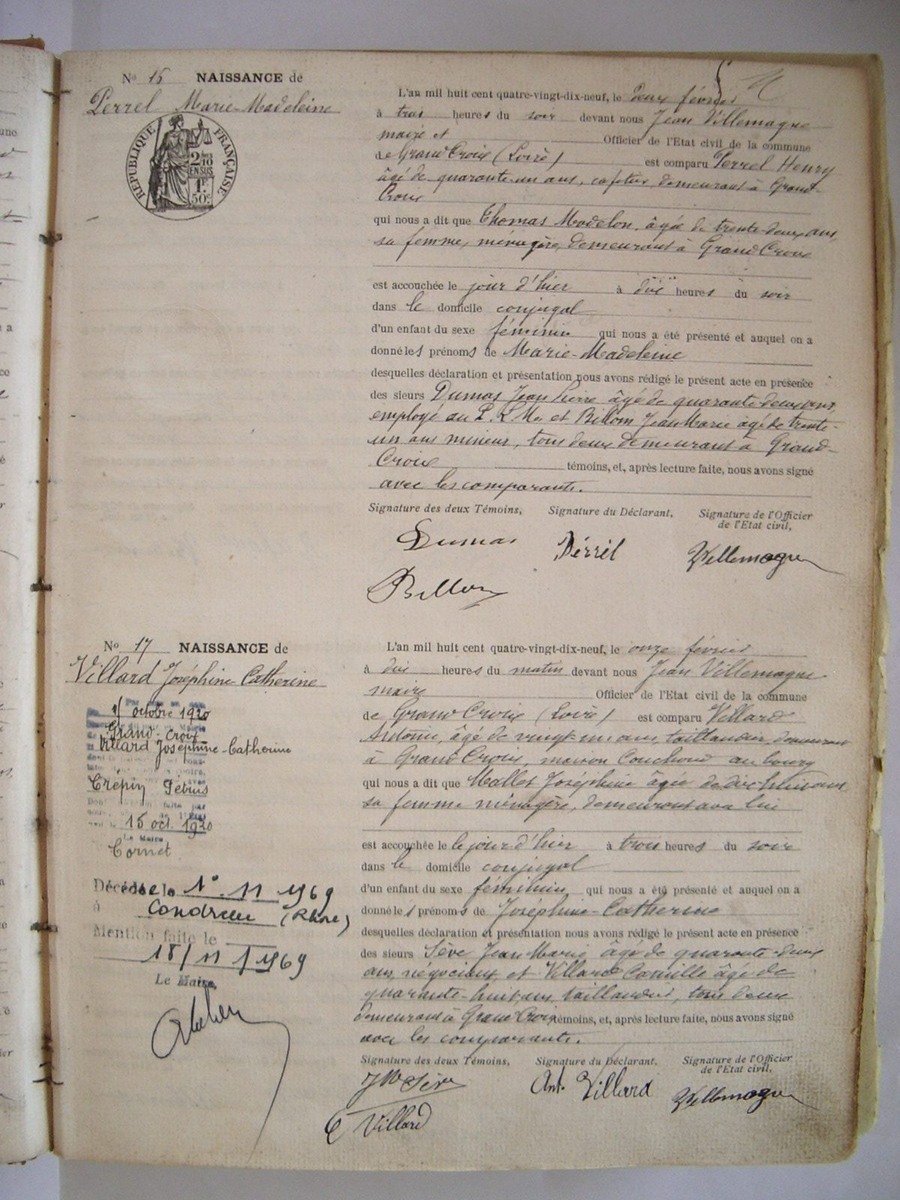 N° 15 NAISSANCE de
Perrel Marie-Madeleine
RÉPUBLIQUE FRANÇAISE
L'an mil huit cent quatre-vingt-dix-neuf, le deux février
à trois heures du soir devant nous Jean Villemagne
maire et Officier de l'Etat civil de la commune
de Grand'Croix (Loire) est comparu Perrel Henry
âgé de quarante-un ans, cafetier, demeurant à Grand
Croix
qui nous a dit que Thomas Madelon, âgée de trente-deux ans,
sa femme, ménagère, demeurant à Grand'Croix
est accouchée le jour d'hier à dix heures du soir
dans le domicile conjugal
d'un enfant du sexe féminin qui nous a été présenté et auquel on a
donné les prénoms de Marie-Madeleine
desquelles déclaration et présentation nous avons rédigé le présent acte en présence
des sieurs Dumas Jean Pierre âgé de quarante-deux ans,
employé au P.L.M. et Billon Jean Marie âgé de trente-
un ans mineur, tous deux demeurant à Grand-
Croix témoins, et, après lecture faite, nous avons signé
avec les comparants.
Signature des deux Témoins, Signature du Déclarant, Signature de l'Officier
de l'Etat civil,
Dumas Pérrél Villemagne
Billon
N° 17 NAISSANCE de
Villard Joséphine Catherine
octobre 1920
Grand-Croix
Villard Joséphine-Catherine
Crépin
15 oct. 1920
Le Maire
Cornet
Décédée le 1°. 11 1969
à Condrieu (Rhône)
Mention faite le
18/11/1969
Le Maire,
L'an mil huit cent quatre-vingt-dix-neuf, le onze février
à dix heures du matin devant nous Jean Villemagne
maire Officier de l'Etat civil de la commune
de Grand'Croix (Loire) est comparu Villard
Antoine, âgé de vingt un ans, taillandier, demeurant
à Grand'Croix, maison Couchoud au bourg
qui nous a dit que Mallet Joséphine âgée de dix huit ans
sa femme ménagère, demeurant avec lui
est accouchée le jour d'hier à trois heures du soir
dans le domicile conjugal
d'un enfant du sexe féminin, qui nous a été présenté et auquel on a
donné les prénoms de Joséphine-Catherine
desquelles déclaration et présentation nous avons rédigé le présent acte en présence
des sieurs Sève Jean Marie âgé de quarante-deux
ans, négociant, et Villard Camille âgé de
quarante-huit ans taillandier, tous deux
demeurant à Grand'Croix témoins, et, après lecture faite, nous avons signé
avec les comparants.
Signature des deux Témoins, Signature du Déclarant, Signature de l'Officier
de l'Etat civil,
JM Sève Ant. Villard Villemagne
C Villard